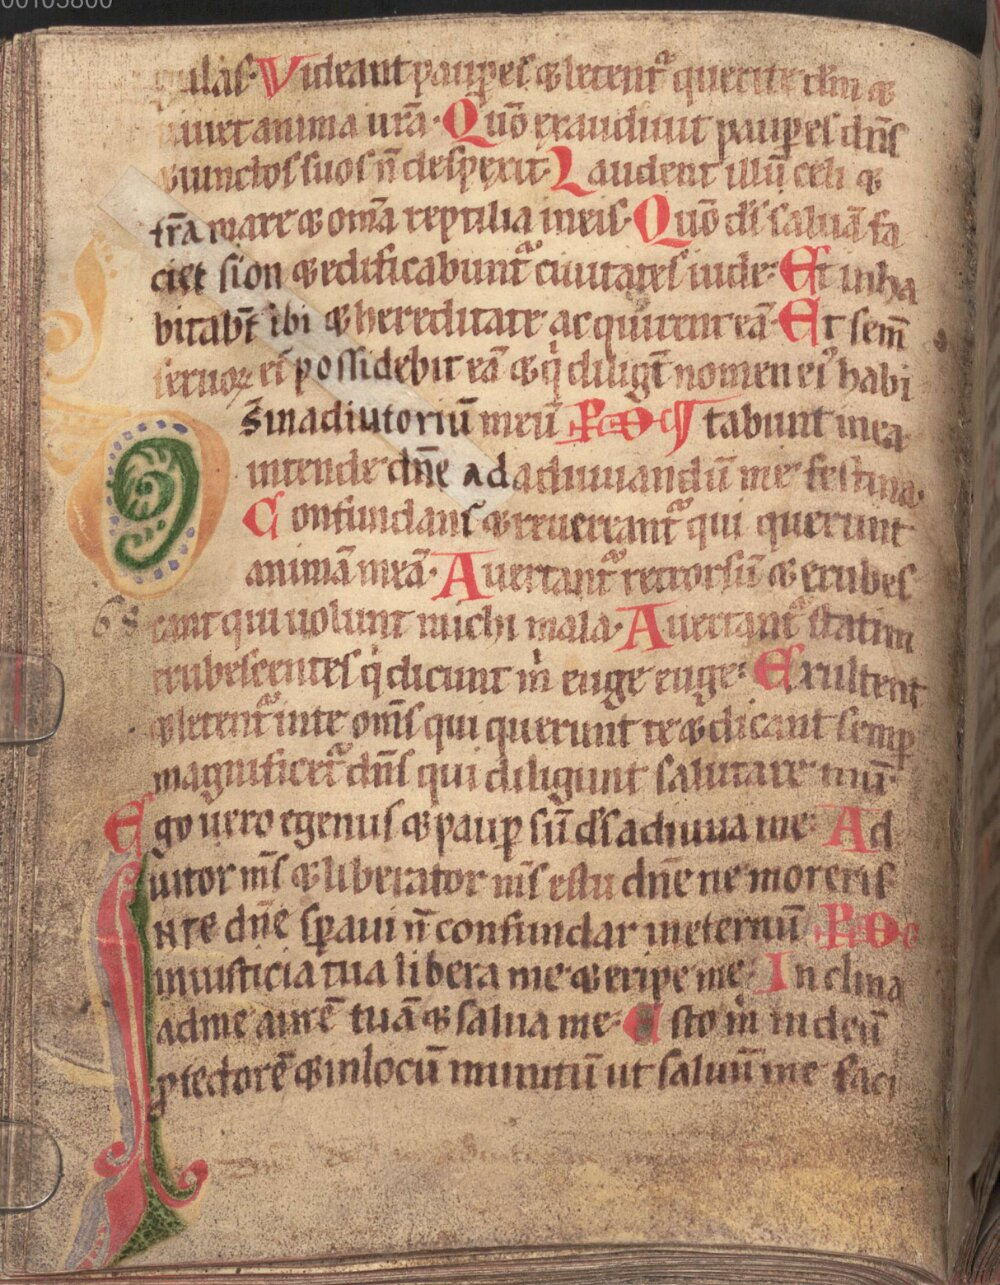 00105800
gulas· Videant paupes & letent᷑ querite dn̅m &
uiuet anima ur̅a· Quo̅ exaudiuit paupes dn̅s
& uinctos suos n̅ despexit· Laudent illu̅ celi &
tr̅a mare & om̅a reptilia in eis· Quo̅ ds̅ salua̅ fa
ciet sion & edificabunt᷑ ciuitates iude· Et inha
bitab̅t ibi & hereditate acquirent ea̅· Et sem̅
seruoꝝ ei᷒ possidebit ea̅ & q̇ diligt̅ nomen ei᷒ habi
S̅ in adiutoriu̅ meu̅ tabunt in ea·
intende dn̅e ad adiuuandu̅ me festina·
Confundant᷑ & reuereant᷑ qui querunt
anima̅ mea̅· Auertant᷑ retrorsu̅ & erubes
cant qui uolunt michi mala· Auertant᷑ statim
68
erubescentes q̇ dicunt ṁ euge euge· Exultent
& letent᷑ in te om̅s qui querunt te & dicant semp̲
magnificet᷑ dn̅s qui diligunt salutare tuu̅·
Ego uero egenus & paup̲ su̅ ds̅ adiuua me· Ad
iutor m̅s & liberator m̅s es tu dn̅e ne moreris
IN te dn̅e sp̲aui n̅ confundar in eternu̅
in iusticia tua libera me & eripe me· Inclina
ad me aure̅ tua̅ & salua me· Esto ṁ in deu̅
ꝓtectore̅ & in locu̅ munitu̅ ut saluu̅ me faci